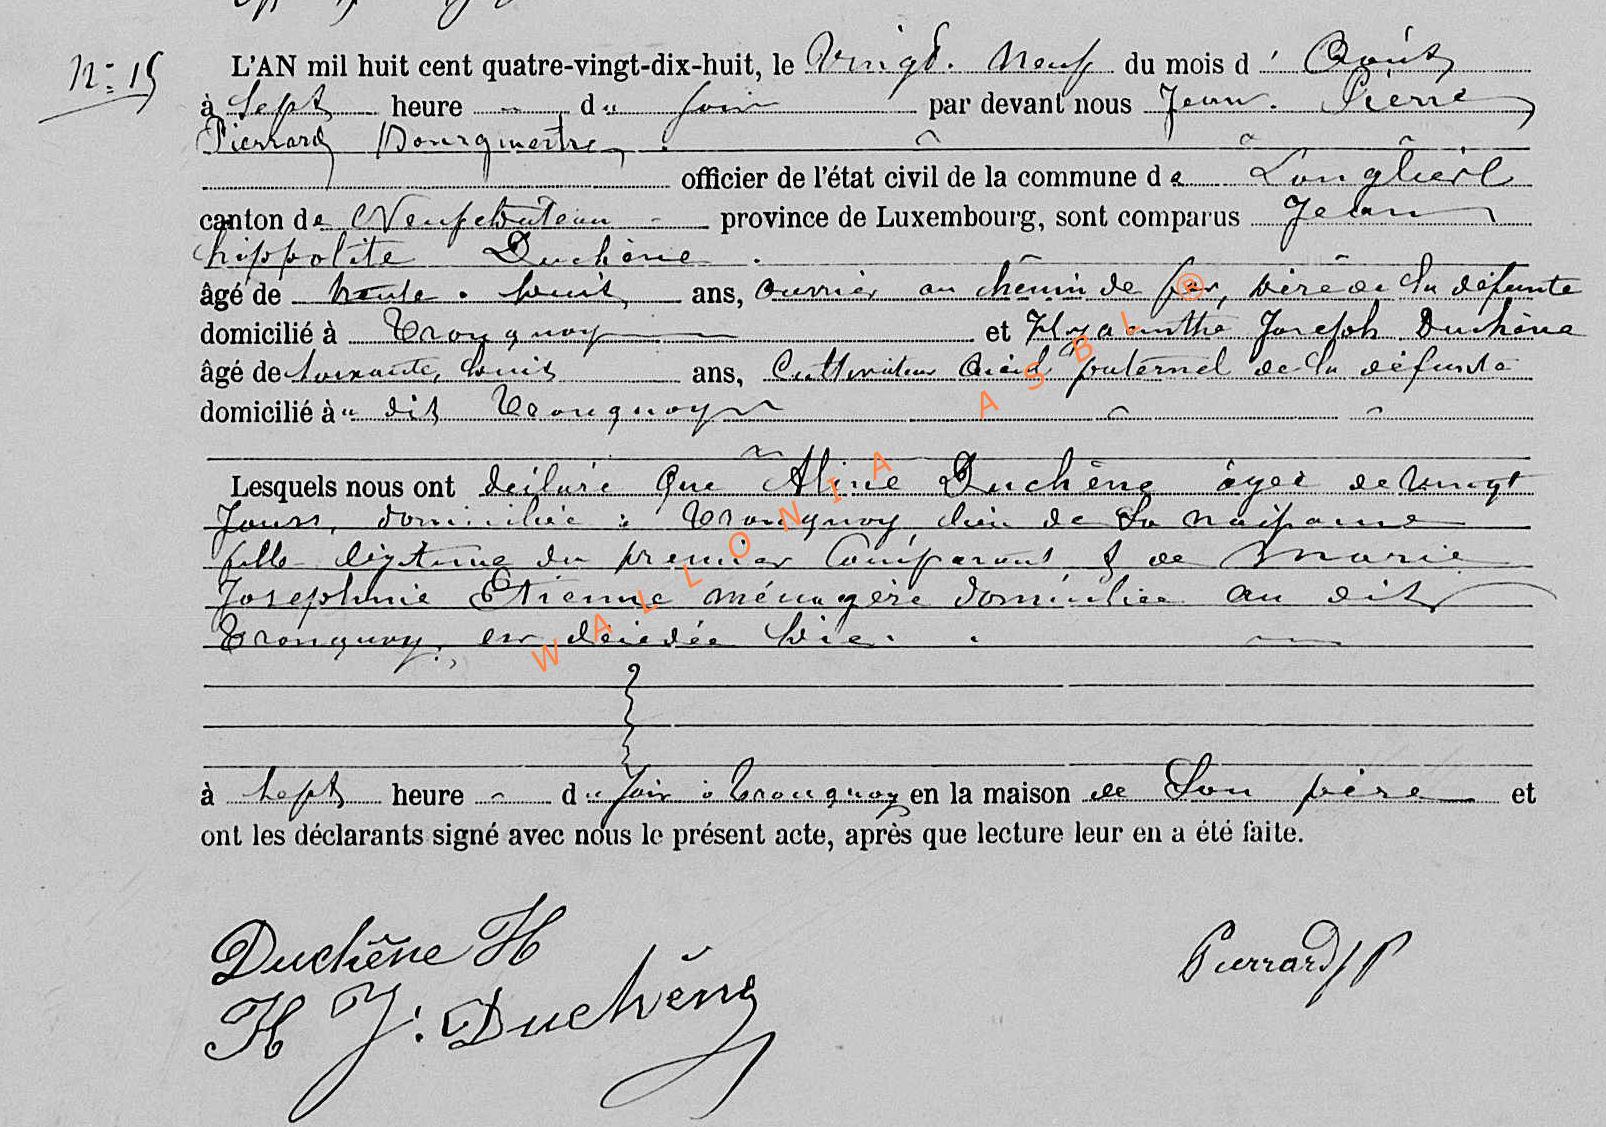 N: 15
L'AN mil huit cent quatre-vingt-dix-huit, le Vingt. Neuf du mois d' Août
à Sept heure du soir par devant nous Jean. Pierre
Pierrard Bourgmestre,
officier de l'état civil de la commune de Longlier
canton de Neufchâteau province de Luxembourg, sont comparus Jean
hippolite Duchêne
âgé de trente. huit ans, ouvrier au chêmin de fer, père de la défunte
domicilié à Tronquoy et Hyacinthe Joseph Duchêne
âgé de soixante, huit ans, Cultivateur Aieul paternel de la défunte
domicilié à dit Tronquoy
Lesquels nous ont déclaré que Aline Duchêne âgée de vingt
Jours, domiciliée à Tronquoy, lieu de Sa naissance
fille légitime du premier Comparant & de Marie
Josephine Etienne ménagère domiciliée au dit
Tronquoy, est décédée hier
à Sept heure du soir à Tronquoy en la maison de Son père et
ont les déclarants signé avec nous le présent acte, après que lecture leur en a été faite.
Duchêne H
H J. Duchêne
Pierrard J P
WALLONIA ASBL ®